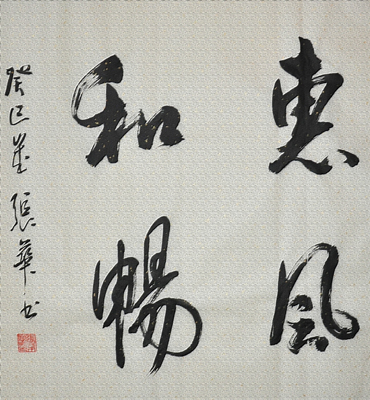 惠風
和暢
癸巳歲張華书